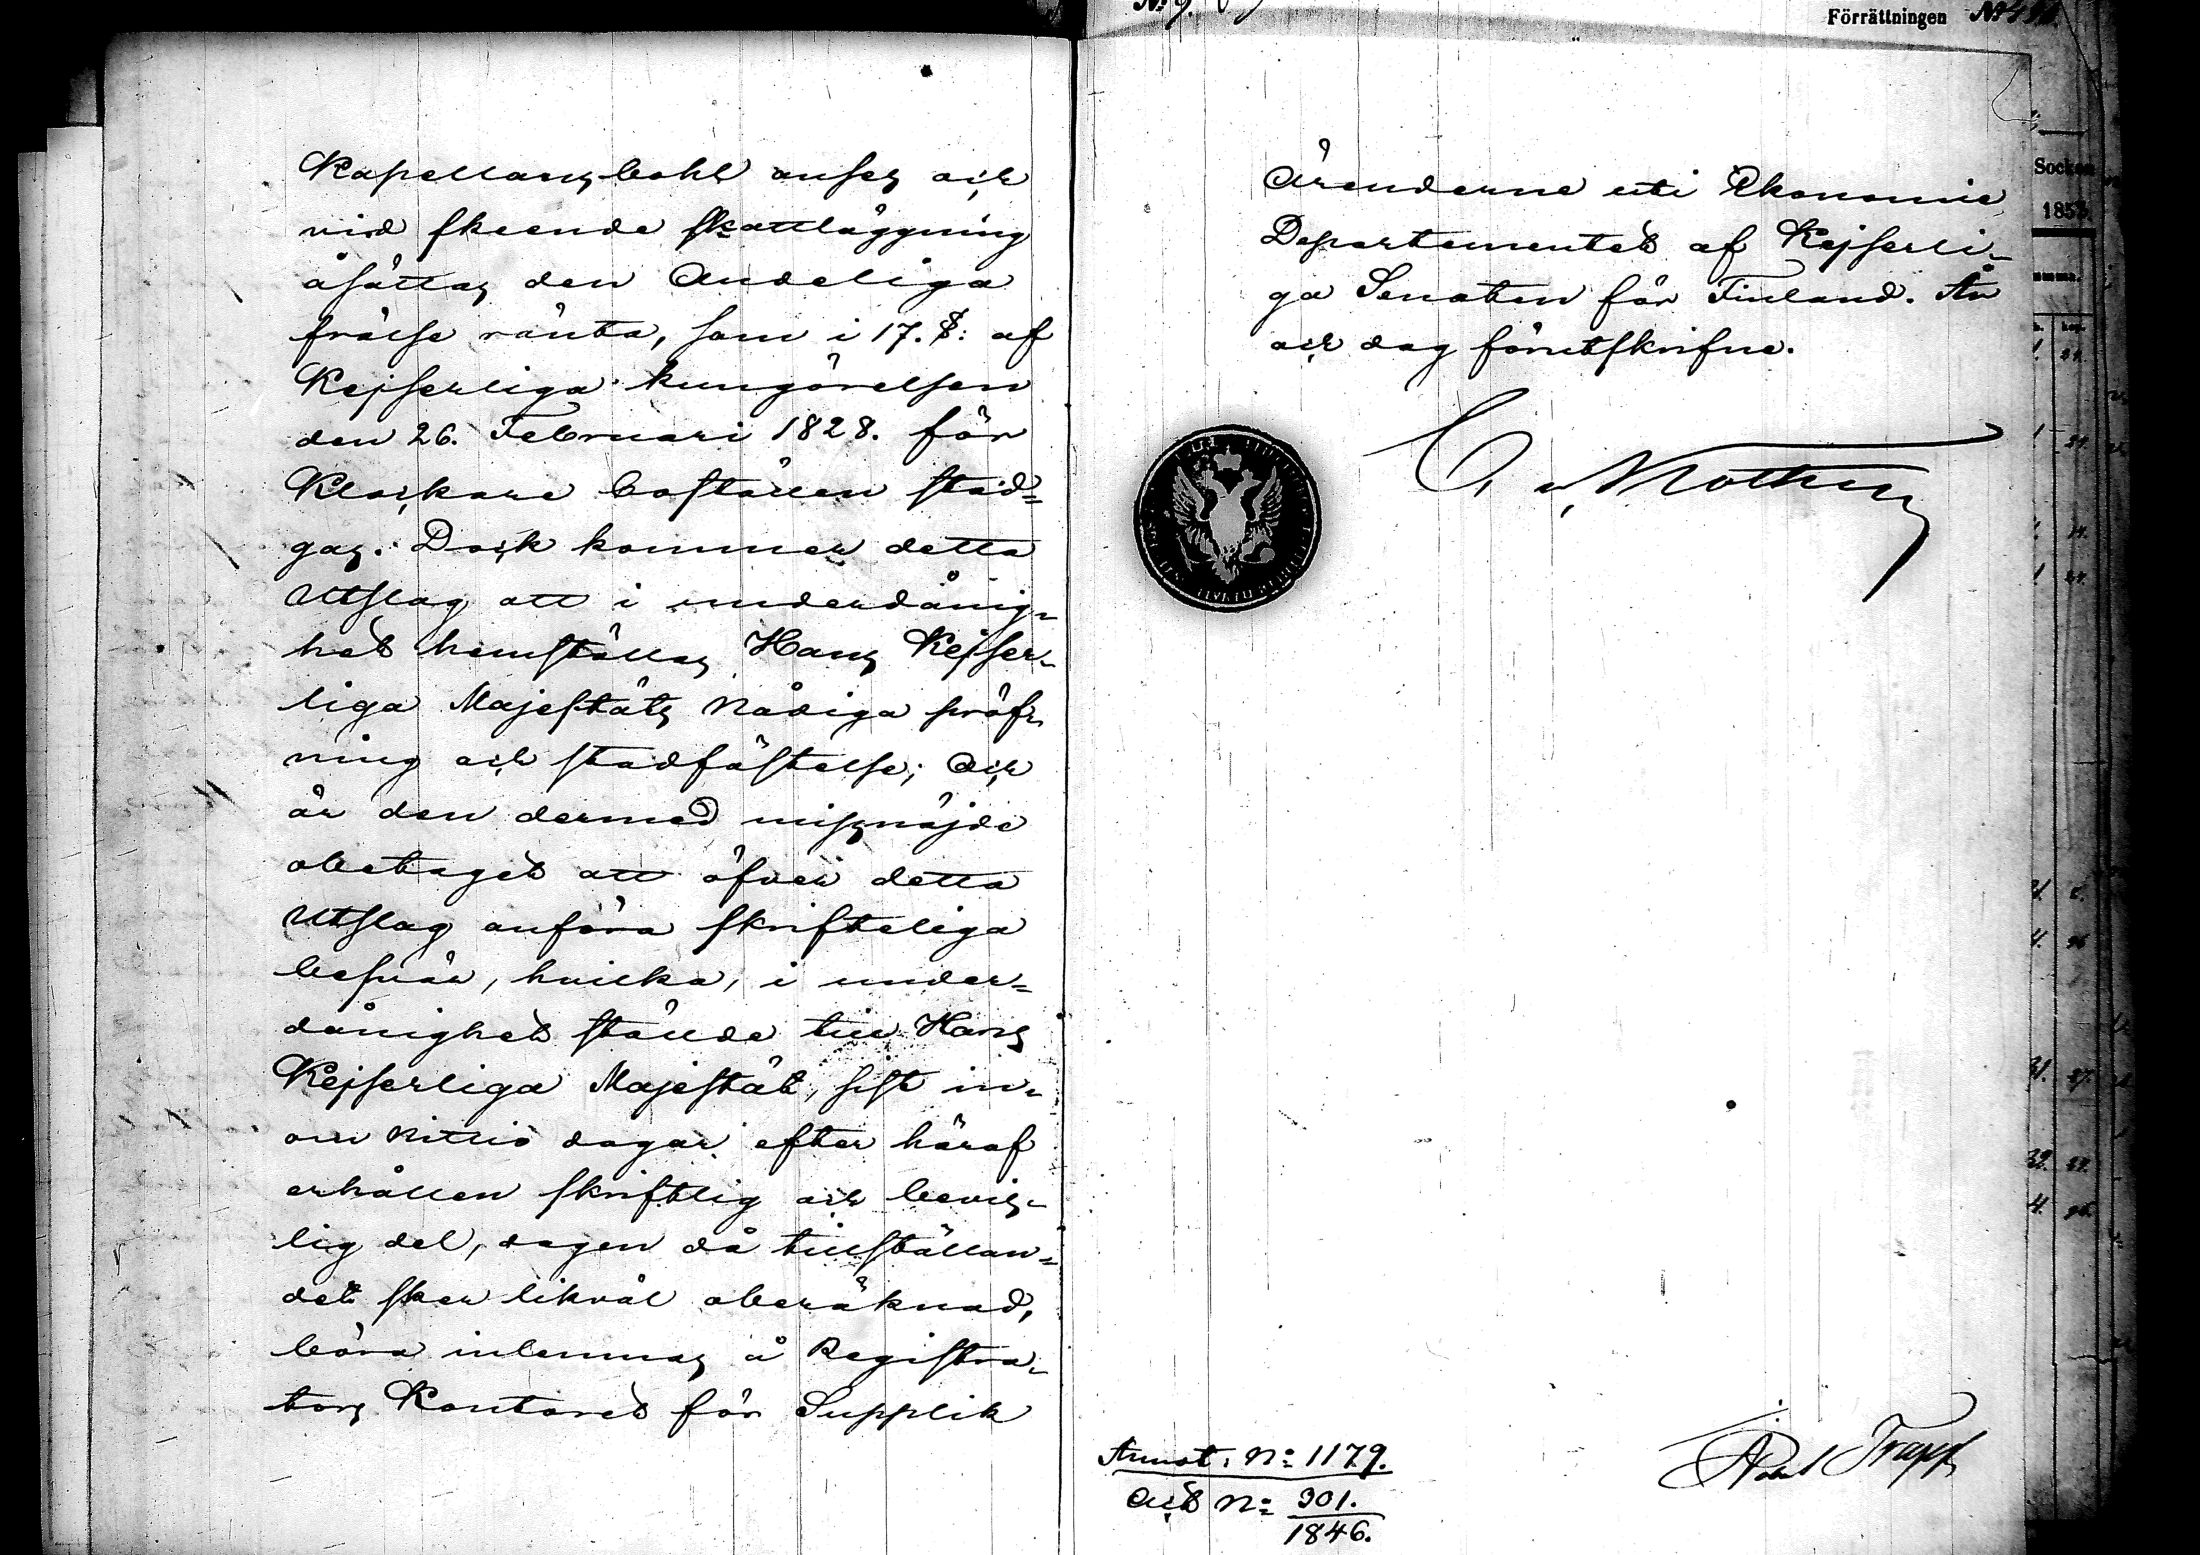 Kapellans bohl anses och
vid skeende skattläggning
åsättas den Andeliga
frälse ränta, som i 17. §: af
Kejserliga kungörelsen
den 26. Februari 1828. för
Klockare boställen stad=
gas. Dock kommer detta
Utslag att i underdånig-
het hemställas Hans Kejser-
liga Majestäts Nådiga pröf-
ning och stadfästelse; Och
är den dermed missnöjde
obetaget att öfver detta
Utslag anföra skrifteliga
besvär, hvilka, i under=
dånighet stälde till Hans
Kejserliga Majestät, sist in-
om Nittio dagar efter häraf
erhållen skriftlig och bevis-
lig del, dagen då tillställan=
det sker likväl oberäknad,
böra inlemnas å Registra-
tors Kontoret för Supplik
Förrättningen
Ärenderne uti Ekonomie
Departementet af Kejserli-
ga Senaten för Finland. År
och dag förutskrifne.
C. v. Kothen
Annot. No 1179.
Act No 301.
1846.
Trapp
Socken
1853.